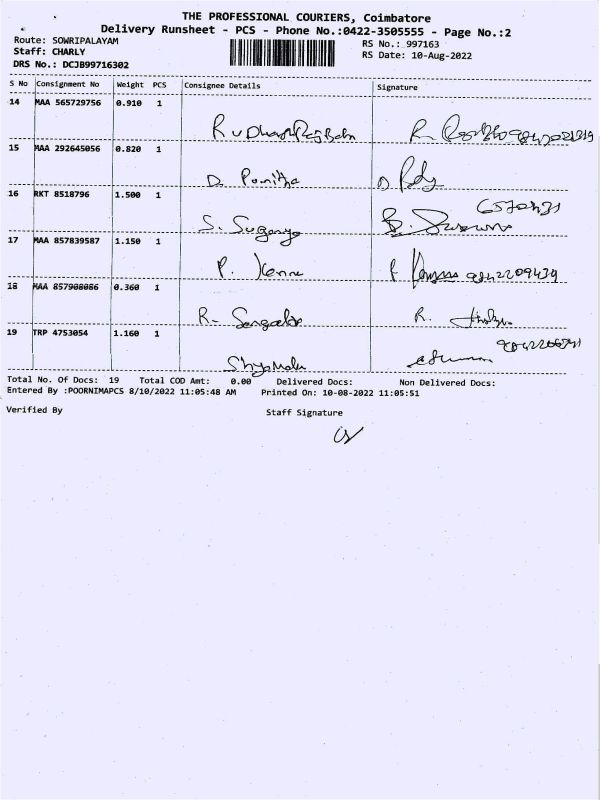 THE PROFESSIONAL COURIERS, Coimbatore
Delivery Runsheet - PCS - Phone No.:0422-3505555 - Page No.:2
Route: SOWRIPALAYAM
RS No.: 997163
Staff: CHARLY
RS Date: 10-Aug-2022
DRS No.: DCJB99716302
S No Consignment No Weight PCS Consignee Details Signature
14 MAA 565729756 0.910 1
15 MAA 292645056 0.820 1
D. Pomitha
16 RKT 8518796 1.500 1
S. Suganya
17 MAA 857839587 1.150 1
P. 9842209439
18 MAA 857908086 0.360 1
R. R.
19 TRP 4753054 1.160 1
Shyamala
Total No. Of Docs: 19 Total COD Amt: 0.00 Delivered Docs: Non Delivered Docs:
Entered By :POORNIMAPCS 8/10/2022 11:05:48 AM Printed On: 10-08-2022 11:05:51
Verified By Staff Signature